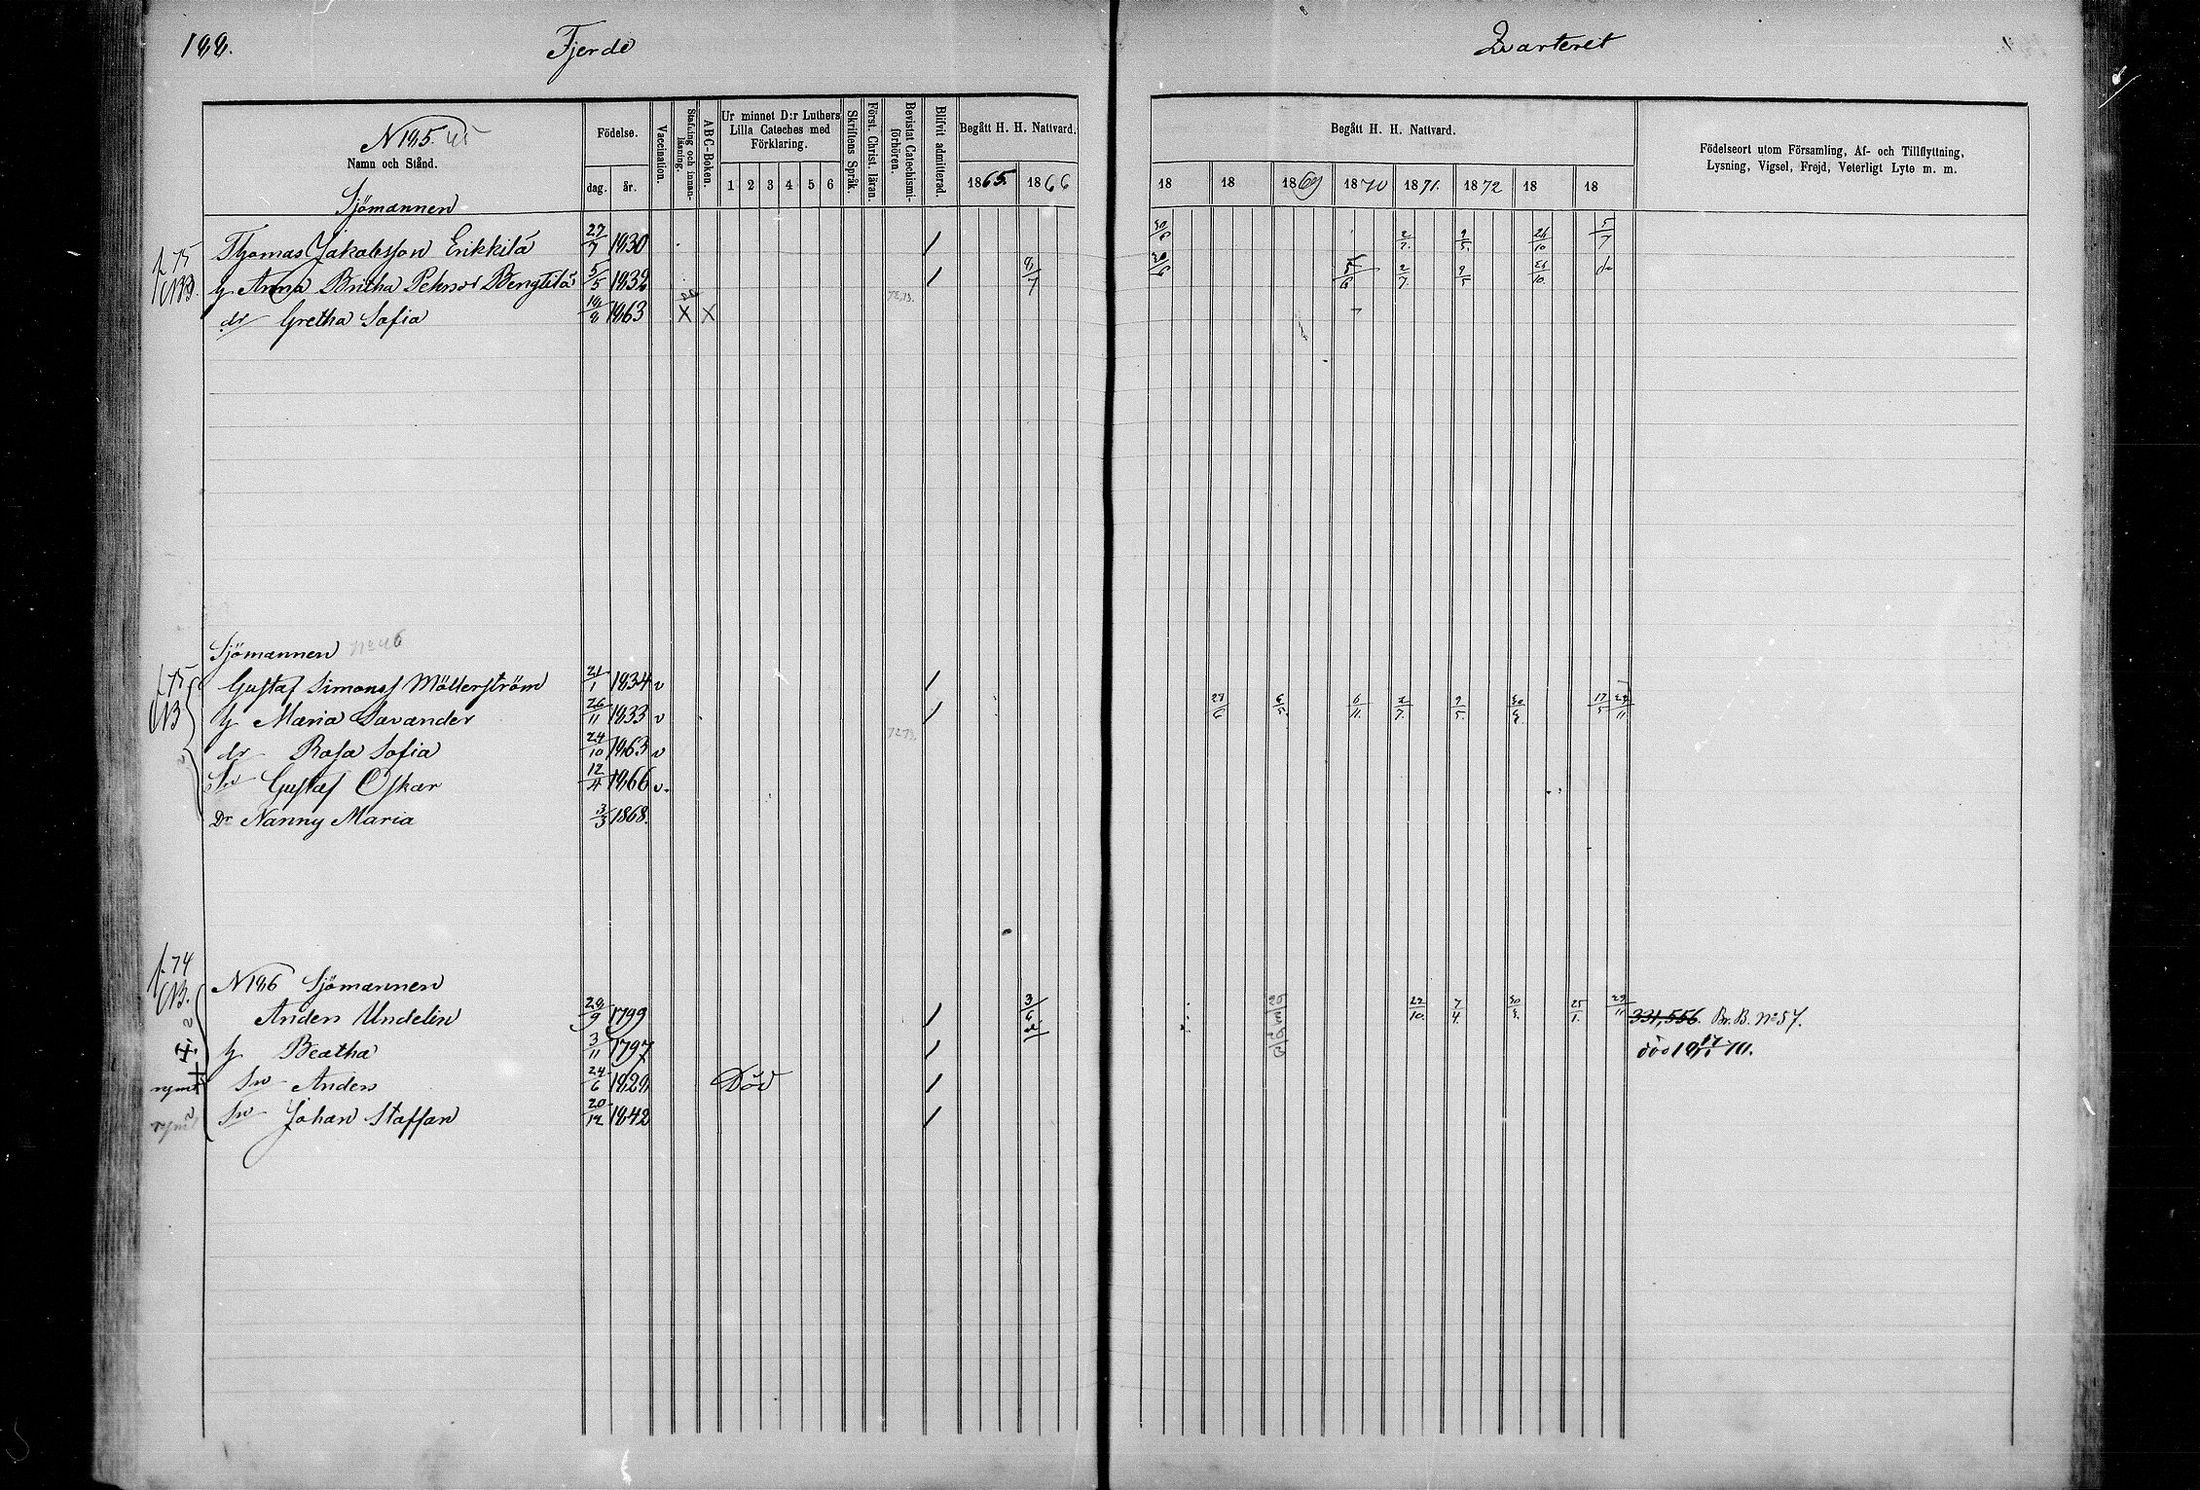 188. Fjerde Qvarteret
N 185. 45
Namn och Stånd. Födelse. dag. år. Vaccination. Stafning och innan-läsning. A B C-Boken. Ur minnet D:r Luthers Lilla Cateches med Förklaring. 1 2 3 4 5 6 Skriftens Språk. Först. Christ. läran. Bevistat Catechismi-förhören. Blifvit admitterad. Begått H. H. Nattvard. 1865. 1866
Begått H. H. Nattvard. 18 18 1869 1870 1871. 1872 18 18
Födelseort utom Församling, Af- och Tillflyttning,
Lysning, Vigsel, Frejd, Veterligt Lyte m. m.
Sjömannen
Thomas Jakobsson Erikkilä 27/7 1830 / 30/6 2/7. 9/5. 26/10 5/7
f. 75 CNB. h Anna Britha Pehrsdr Bengtilä 5/5 1832 / 8/7 30/6 5/6 2/7 9/5 26/10. do
dr Gretha Sofia 18/8 1863 X X 72,73.
Sjömannen No 46
f. 75 Gustaf Simonss Möllerström 21/1 1834 v /
CNB h Maria Savander 26/11 1833 v / 6/5. 6/11. 2/7. 9/5. 17/5 29/11
dr Rosa Sofia 24/10 1863 v 72 73.
Sn Gustaf Oskar 12/4 1866 v.
Dr Nanny Maria 3/3 1868.
f. 74
CNB. N 186 Sjömannen
Anders Undelin 28/9 1799 / 3/6. 22/10. 7/4. 25/1. 29/11 331,556. Br. B. No 57.
h Beatha 3/11 1797 / död 18 17/1 70.
rymt Sn Anders 24/6 1828 Död /
rymt Sn Johan Staffan 20/12 1842 /